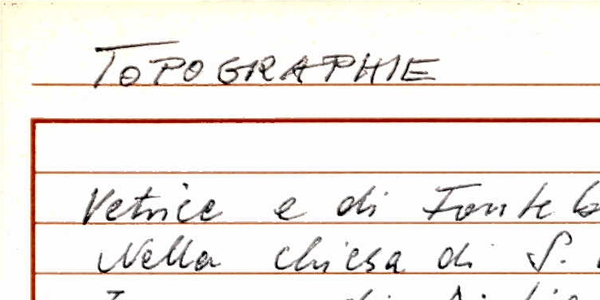 TOPOGRAPHIE
Vetrice e di
Nella chiesa di S.
di